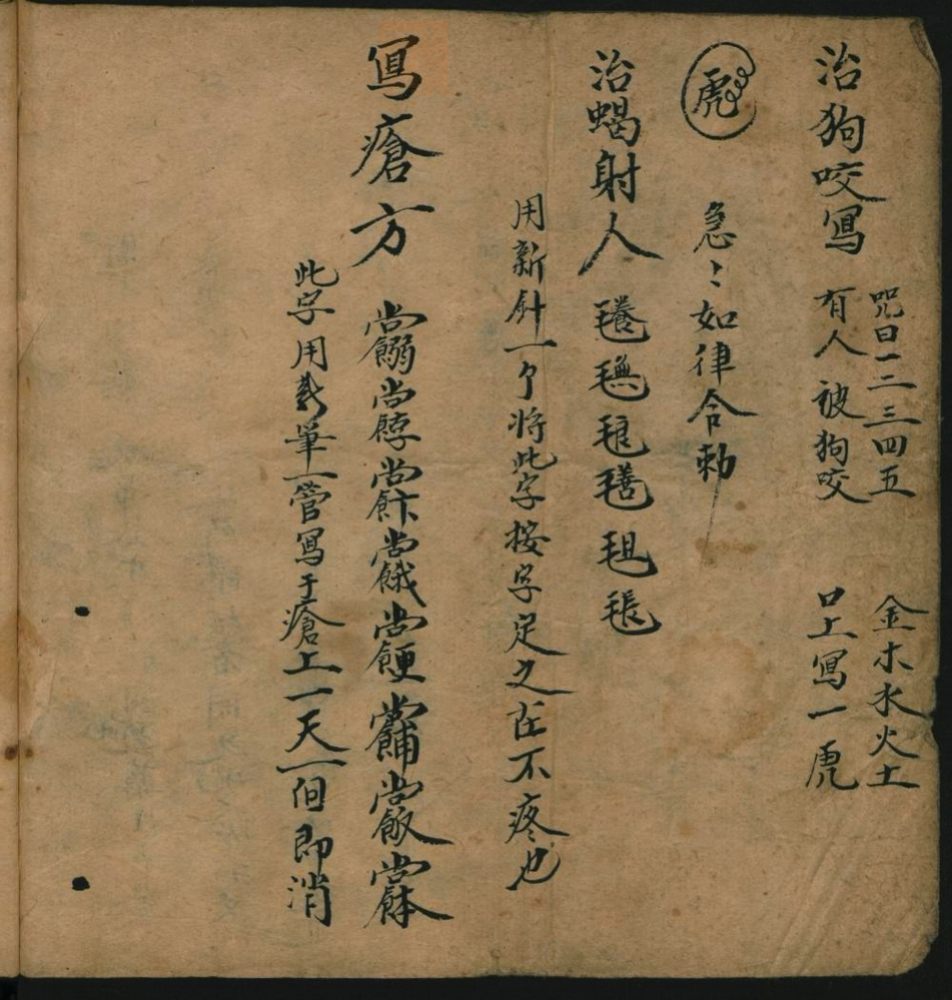 治狗咬寫
咒曰一二三四五 金木水火土
有人被狗咬 口上寫一虎
虎 急〻如律令勅
治蝎射人
用新針一个將此字按字定之在不疼也
寫瘡方
此字用新筆一管寫于瘡上一天一但即消